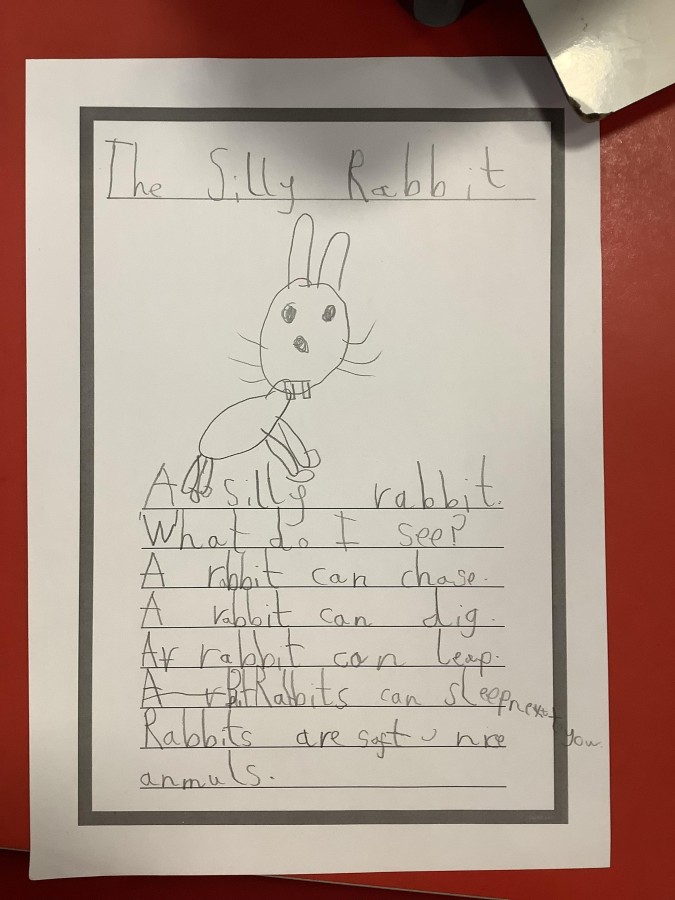 The Silly Rabbit
A silly rabbit.
What do I see?
A rabbit can chase.
A rabbit can dig.
A rabbit can leap.
Rabbits can sleep next you
Rabbits are soft nre
anmuls.